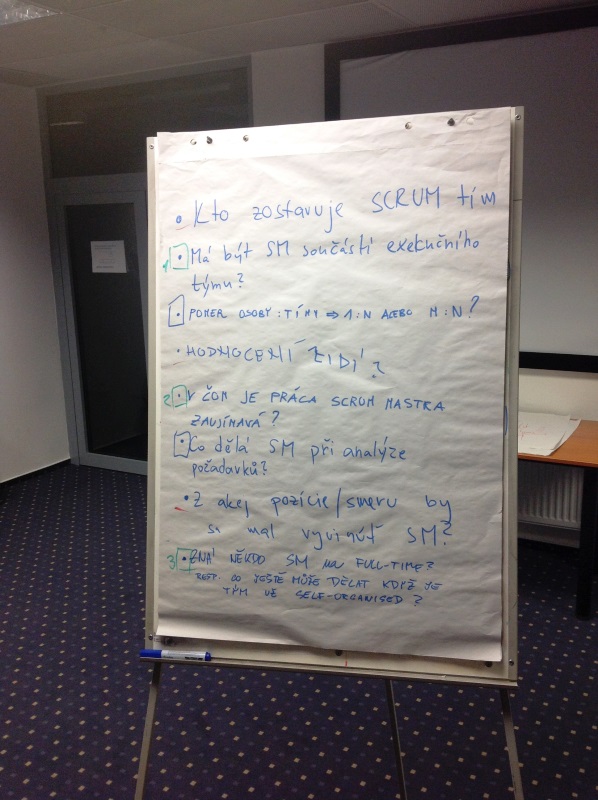 • Kto zostavuje SCRUM tím
1 • Má být SM součástí exekučního
týmu?
• POMER OSOBY : TÍMY ⇒ 1:N ALEBO M:N?
• HODNOCENÍ LIDÍ?
2 • V ČOM JE PRÁCA SCRUM MASTRA
ZAUJÍMAVÁ?
• Co dělá SM při analýze
požadavků?
• Z akej pozície/smeru by
sa mal vyvinúť SM?
3 • ZNÁ NĚKDO SM na FULL-TIME?
RESP. CO JEŠTĚ MŮŽE DĚLAT KDYŽ JE
TÝM UŽ SELF-ORGANISED?